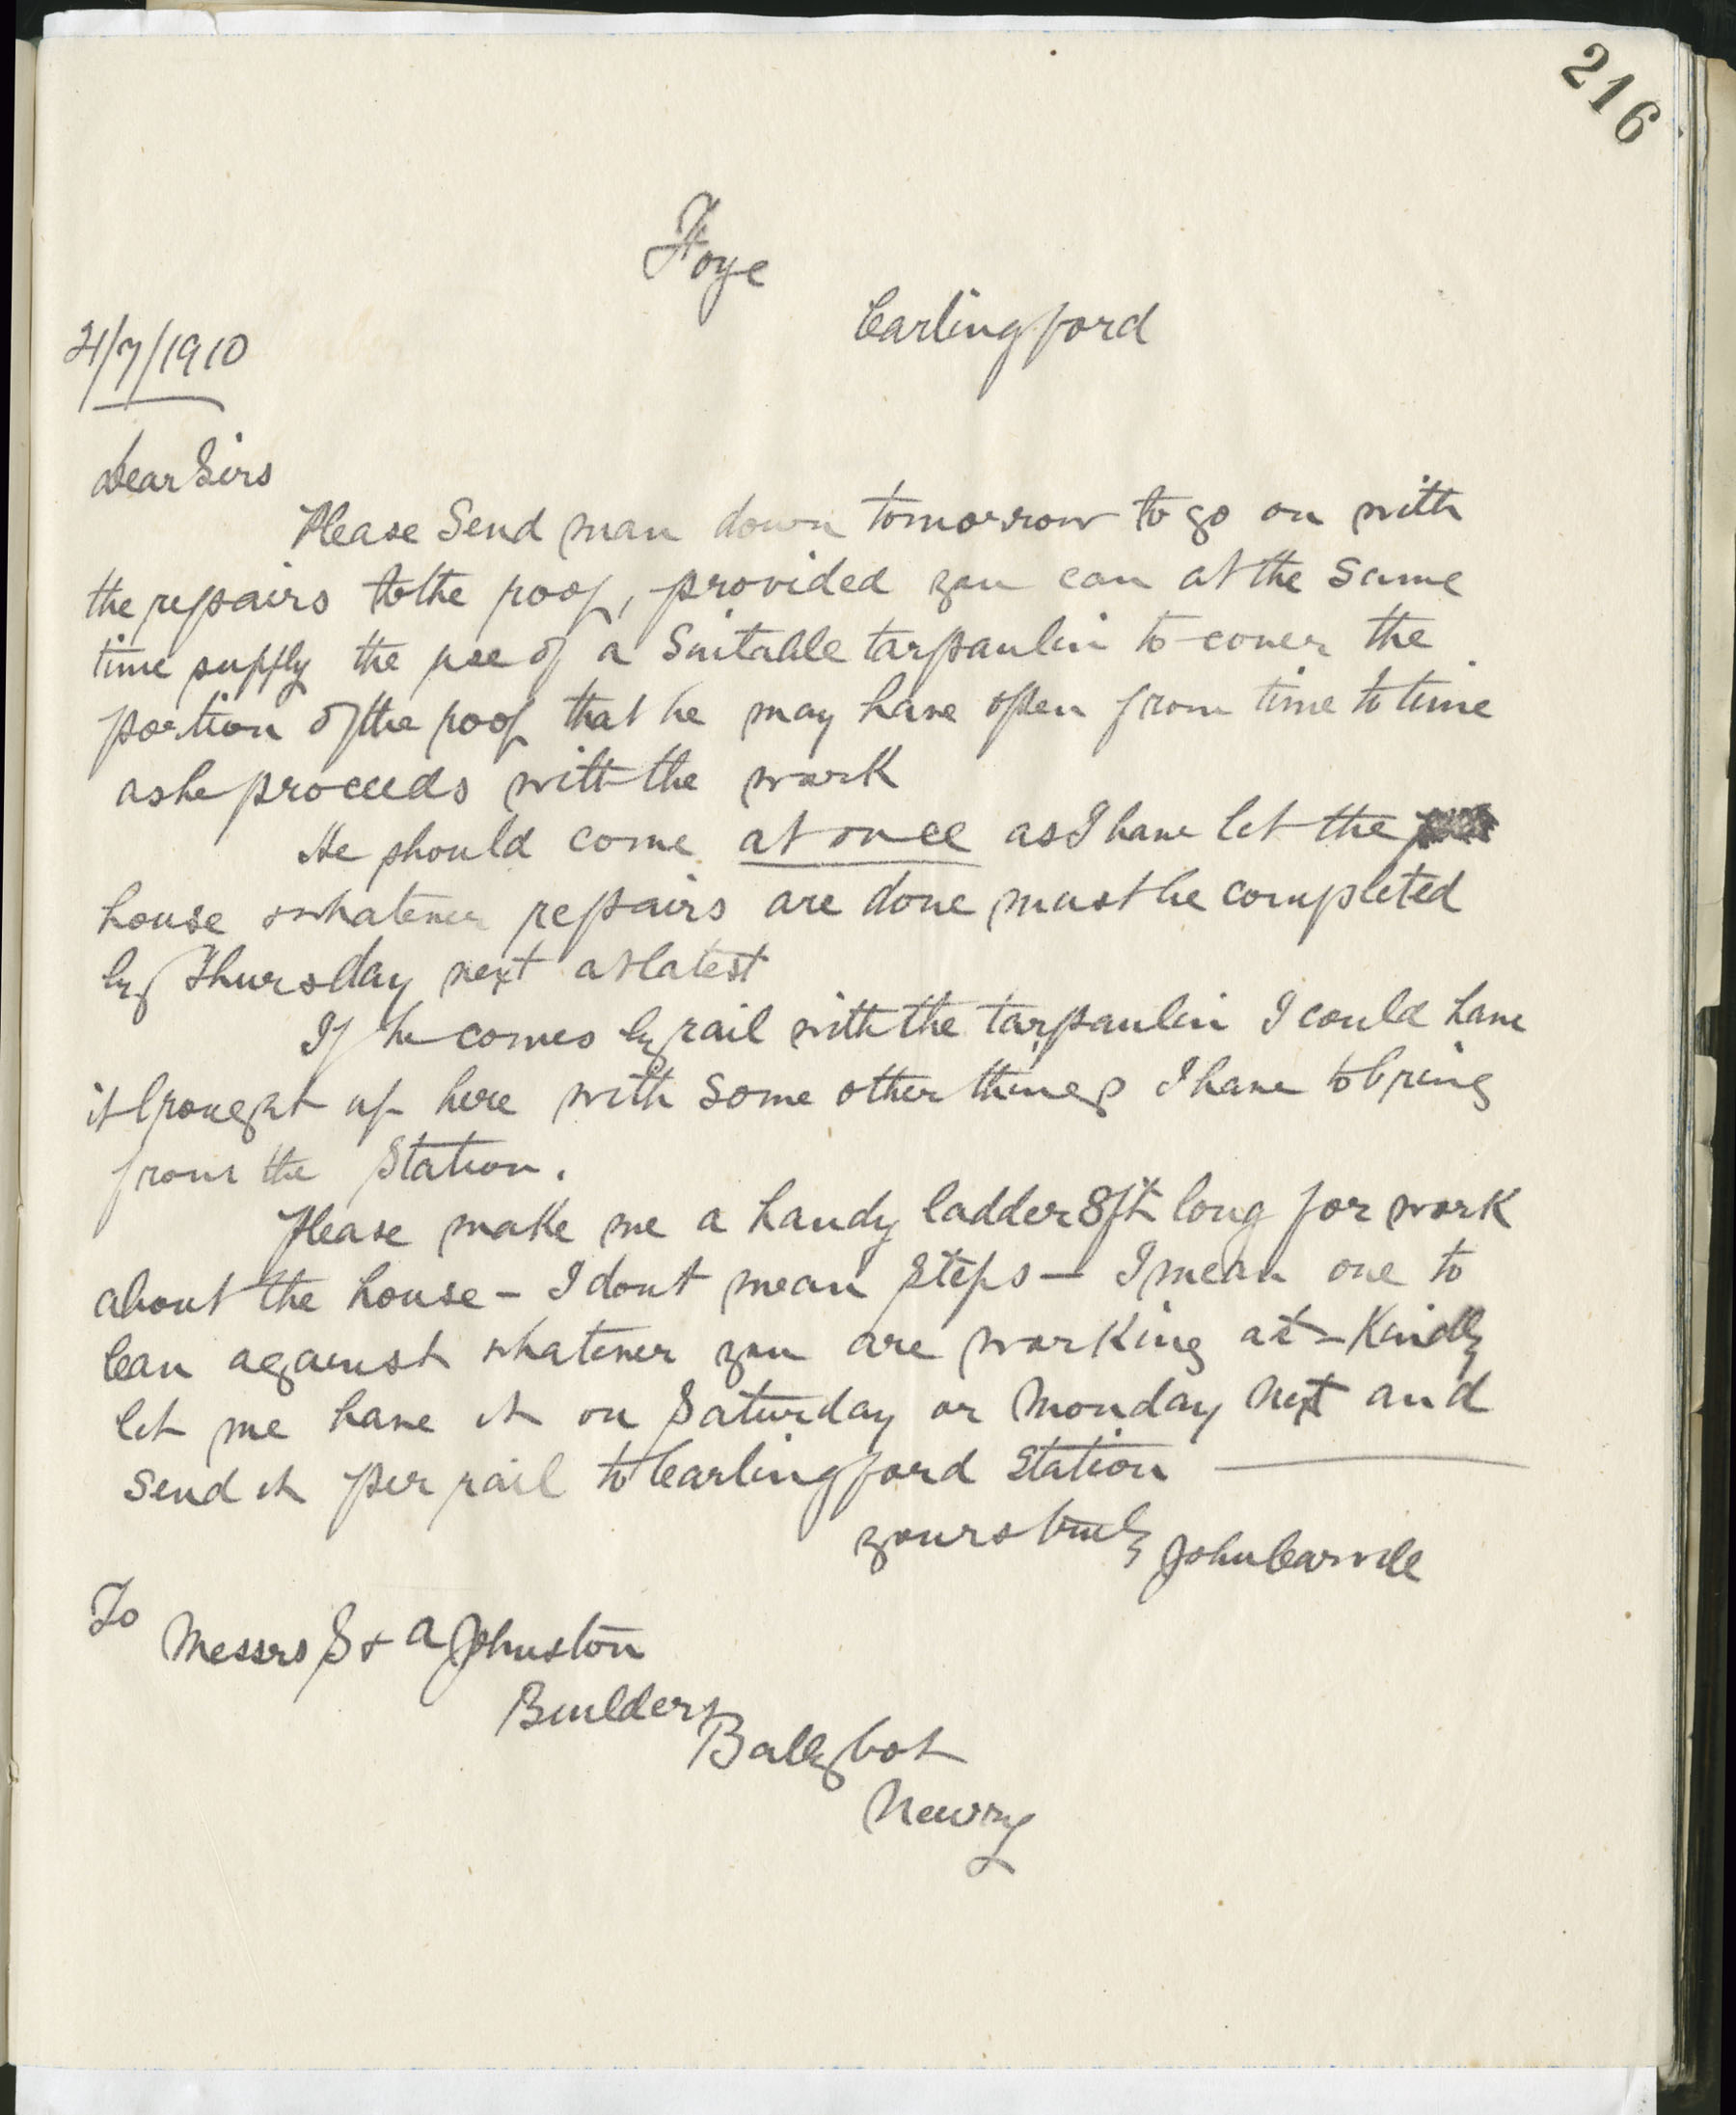 216
Foye
Carlingford
21/7/1910
Dear Sirs
Please Send man down tomorrow to go on with
the repairs to the roof, provided you can at the same
time supply the use of a Suitable tarpaulin to cover the
portion of the roof that he may have open from time to time
as he proceeds with the work
He should come at once as I have let the
house & whatever repairs are done must be completed
by Thursday next at latest
If he comes by rail with the tarpaulin I could have
it brought up here with some other things I have to bring
from the Station.
Please make me a handy ladder 8ft long for work
about the house - I dont mean Steps - I mean one to
lean against whatever you are working at - Kindly
let me have it on Saturday or Monday next and
Send it per rail to Carlingford Station
yours truly John Carvill
To
Messrs S & A Johnston
Builders
Ballybot
Newry